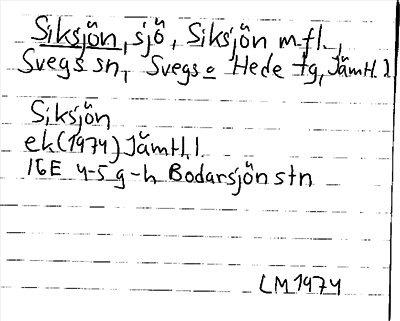 Siksjön, sjö, Siksjön m fl.,
Svegs sn, Svegs o Hede tg, Jämtl. l
Siksjön
ek (1974) Jämtl. l
16E 4-5 g-h Bodarsjön stn
LM 1974